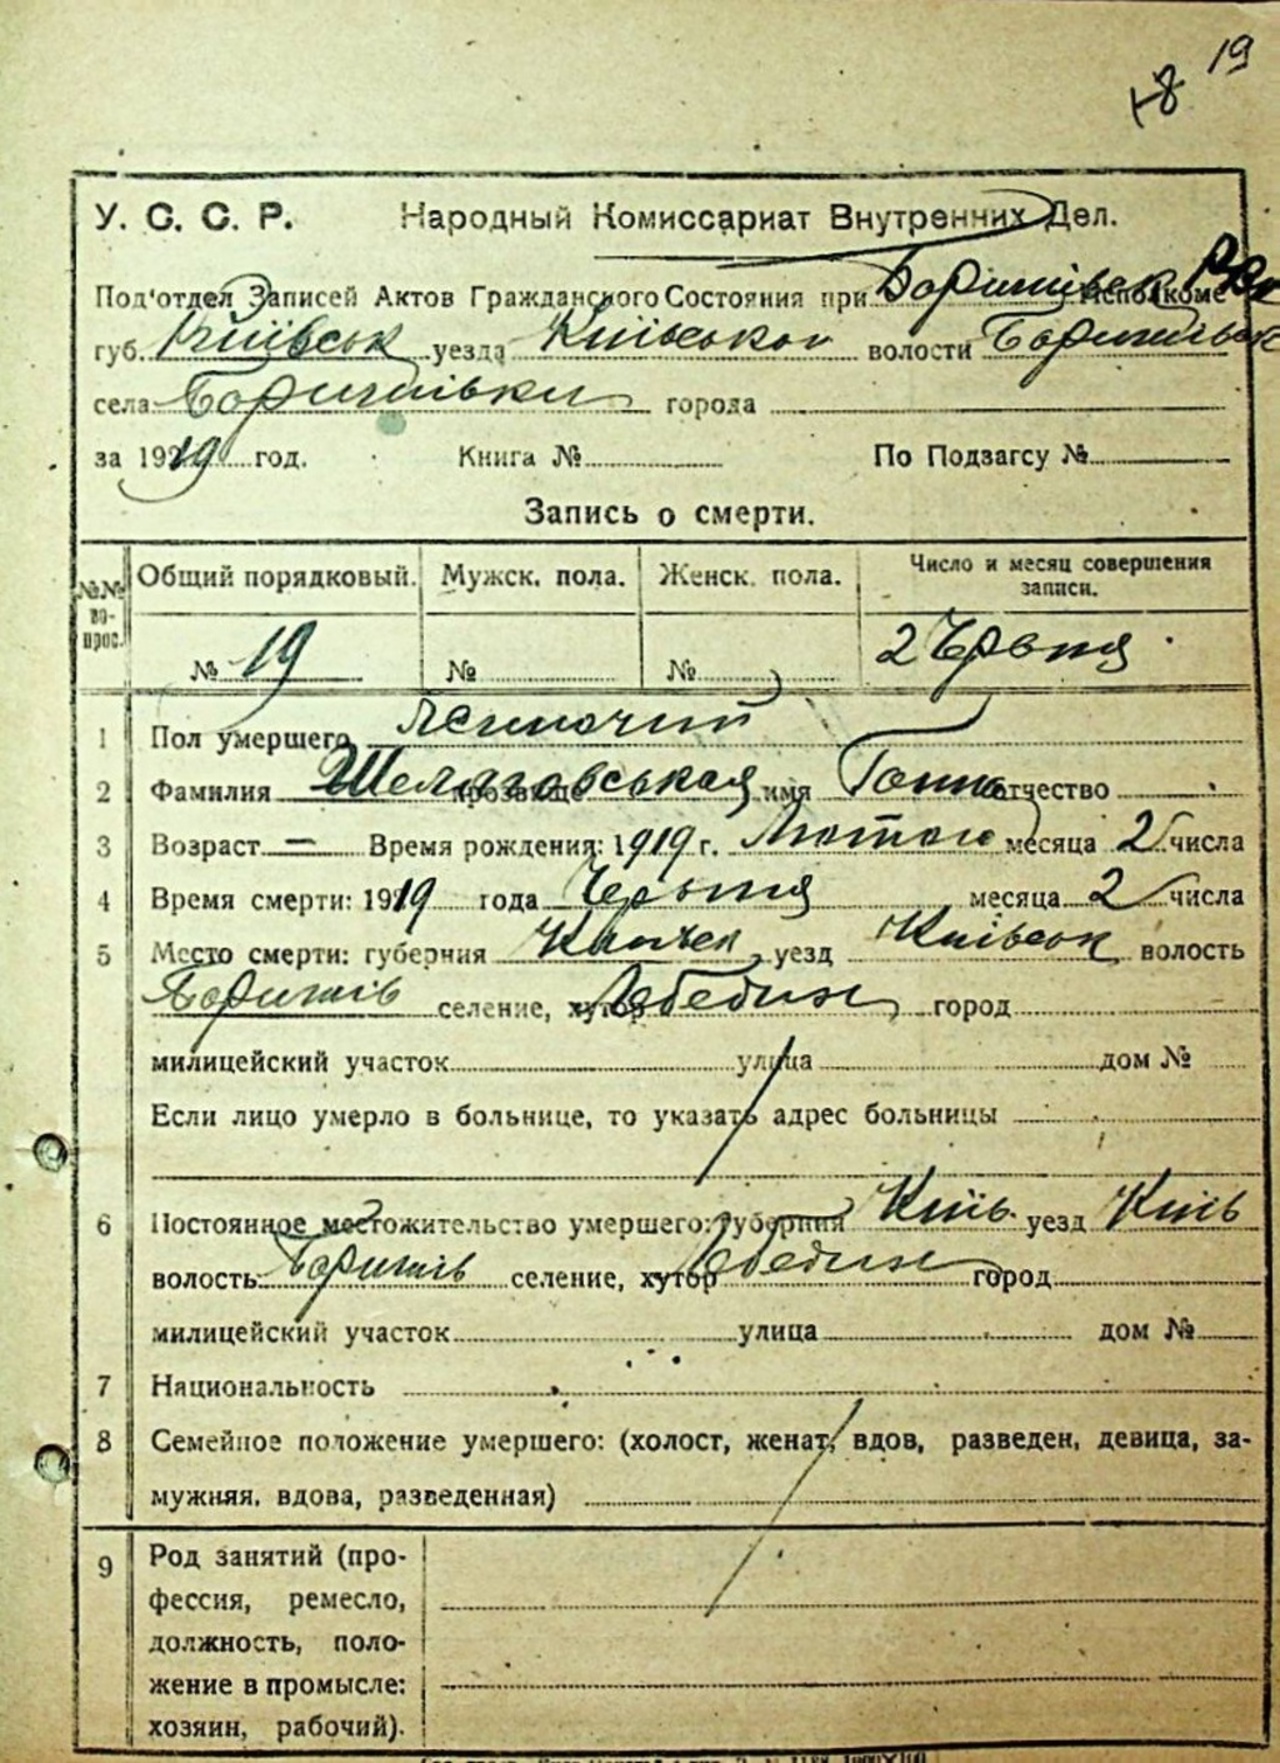 19
18
У. С. С. Р. Народный Комиссариат Внутренних Дел.
Под'отдел Записей Актов Гражданского Состояния при Исполкоме
губ. Київськ уезда Київськои волости
села города
за 1919 год. Книга № По Подзагсу №
Запись о смерти.
№№ во-прос. Общий порядковый. Мужск. пола. Женск. пола. Число и месяц совершения записи.
№ 19 № № 2 Червня
1 Пол умершего жиночий
2 Фамилия Шеляговськая прозвище имя Ганна отчество
3 Возраст — Время рождения: 1919 г. Лютого месяца 2 числа
4 Время смерти: 1919 года Червня месяца 2 числа
5 Место смерти: губерния уезд Київськ волость
селение, хутор Лебедин город
милицейский участок улица дом №
Если лицо умерло в больнице, то указать адрес больницы
6 Постоянное местожительство умершего: губерния Київ. уезд Київ
волость селение, хутор Лебедин город
милицейский участок улица дом №
7 Национальность
8 Семейное положение умершего: (холост, женат, вдов, разведен, девица, за-
мужняя, вдова, разведенная)
9 Род занятий (про-
фессия, ремесло,
должность, поло-
жение в промысле:
хозяин, рабочий).